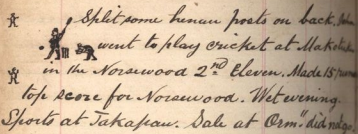 Split some hinau posts on back.
went to play cricket at
in the Norsewood 2nd Eleven. Made 15 runs
top score for Norsewood. Wet evening.
Sports at Takapau. Sale at Orm" did not